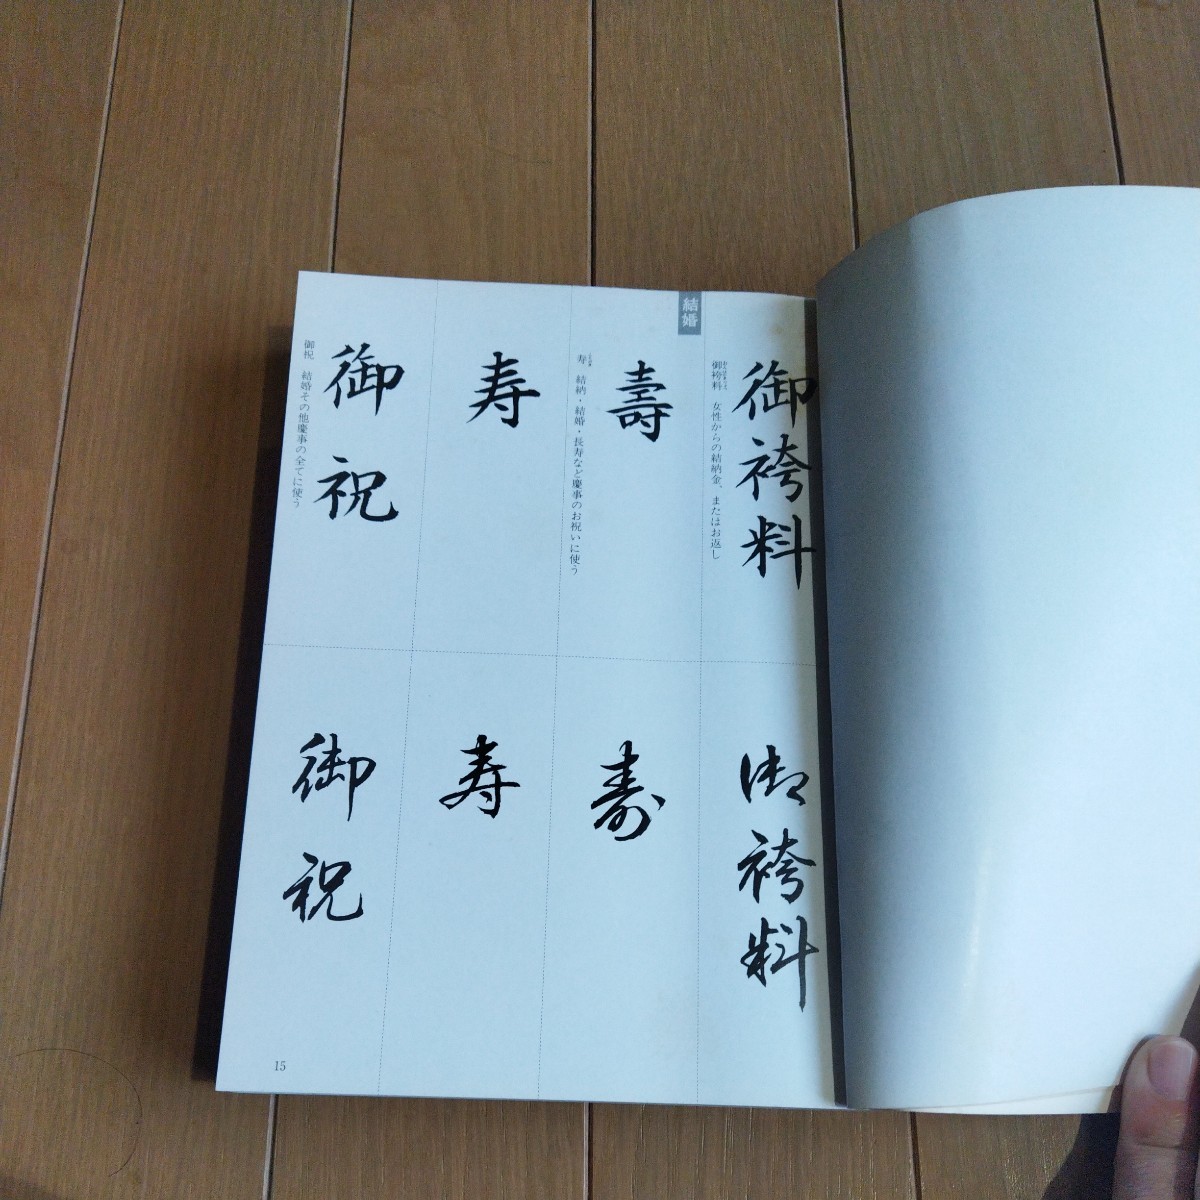 結婚
御袴料
御袴料 女性からの結納金、またはお返し
壽
寿 結納・結婚・長寿など慶事のお祝いに使う
寿
御祝
御祝 結婚その他慶事の全てに使う
御袴料
寿
寿
御祝
15